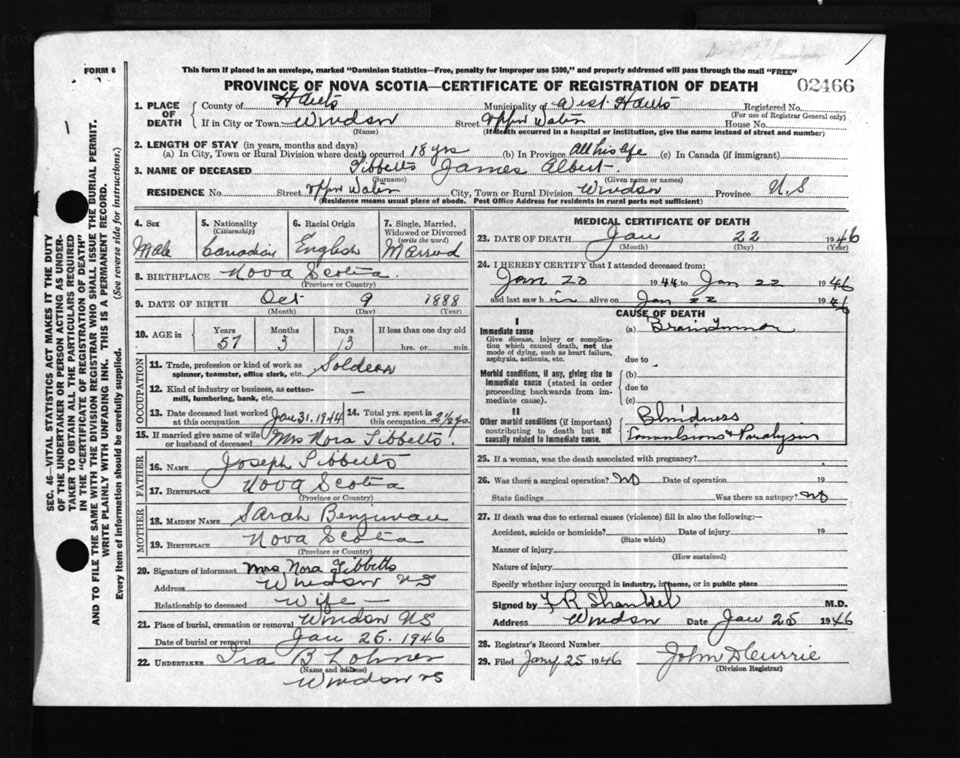 FORM 6
This form if placed in an envelope, marked "Dominion Statistics—Free, penalty for improper use $300," and properly addressed will pass through the mail "FREE"
PROVINCE OF NOVA SCOTIA—CERTIFICATE OF REGISTRATION OF DEATH
02466
1. PLACE OF DEATH
County of Hants Municipality of West Hants Registered No.
(For use of Registrar General only)
If in City or Town Windsor Street Upper Water House No.
(Name) (If death occurred in a hospital or institution, give the name instead of street and number)
2. LENGTH OF STAY (in years, months and days)
(a) In City, Town or Rural Division where death occurred 18 yrs (b) In Province All his life (c) In Canada (if immigrant)
3. NAME OF DECEASED Tibbetts James Albert
(Surname) (Given name or names)
RESIDENCE No. Street Upper Water City, Town or Rural Division Windsor Province N.S
(Residence means usual place of abode. Post Office Address for residents in rural parts not sufficient)
4. Sex
Male
5. Nationality
(Citizenship)
Canadian
6. Racial Origin
English
7. Single, Married, Widowed or Divorced
(write the word)
Married
8. BIRTHPLACE Nova Scotia
(Province or Country)
9. DATE OF BIRTH Oct 9 1888
(Month) (Day) (Year)
10. AGE in
Years Months Days If less than one day old
57 3 13 hrs. or min.
OCCUPATION
11. Trade, profession or kind of work as spinner, teamster, office clerk, etc. Soldier
12. Kind of industry or business, as cotton-mill, lumbering, bank, etc. —
13. Date deceased last worked at this occupation Jan 31, 1944
14. Total yrs. spent in this occupation 2½ yrs.
15. If married give name of wife or husband of deceased Mrs Nora Tibbetts
FATHER
16. NAME Joseph Tibbetts
17. BIRTHPLACE Nova Scotia
(Province or Country)
MOTHER
18. MAIDEN NAME Sarah
19. BIRTHPLACE Nova Scotia
(Province or Country)
20. Signature of informant Mrs Nora Tibbetts
Address Windsor NS
Relationship to deceased Wife —
21. Place of burial, cremation or removal Windsor NS
Date of burial or removal Jan 26, 1946
22. UNDERTAKER Ira B Lohnes
(Name and address)
Windsor NS
MEDICAL CERTIFICATE OF DEATH
23. DATE OF DEATH Jan 22 1946
(Month) (Day) (Year)
24. I HEREBY CERTIFY that I attended deceased from:
Jan 1944 to Jan 22 1946
and last saw him alive on Jan 22 1946
CAUSE OF DEATH
I
Immediate cause
Give disease, injury or complication which caused death, not the mode of dying, such as heart failure, asphyxia, asthenia, etc.
(a) Brain Tumor
due to
Morbid conditions, if any, giving rise to immediate cause (stated in order proceeding backwards from immediate cause).
(b)
due to
(c)
II
Other morbid conditions (if important) contributing to death but not causally related to immediate cause.
Blindness
Convulsions & Paralysis
25. If a woman, was the death associated with pregnancy?
26. Was there a surgical operation? No Date of operation 19
State findings Was there an autopsy? No
27. If death was due to external causes (violence) fill in also the following:—
Accident, suicide or homicide? Date of injury 19
(State which)
Manner of injury
(How sustained)
Nature of injury
Specify whether injury occurred in industry, in home, or in public place
Signed by F R Shankel M.D.
Address Windsor Date Jan 25 1946
28. Registrar's Record Number
29. Filed Jany 25 1946 John D Currie
(Division Registrar)
SEC. 46—VITAL STATISTICS ACT MAKES IT THE DUTY
OF THE UNDERTAKER OR PERSON ACTING AS UNDER-
TAKER TO OBTAIN ALL THE PARTICULARS REQUIRED
IN THE "CERTIFICATE OF REGISTRATION OF DEATH"
AND TO FILE THE SAME WITH THE DIVISION REGISTRAR WHO SHALL ISSUE THE BURIAL PERMIT.
WRITE PLAINLY WITH UNFADING INK. THIS IS A PERMANENT RECORD.
Every item of information should be carefully supplied. (See reverse side for instructions.)